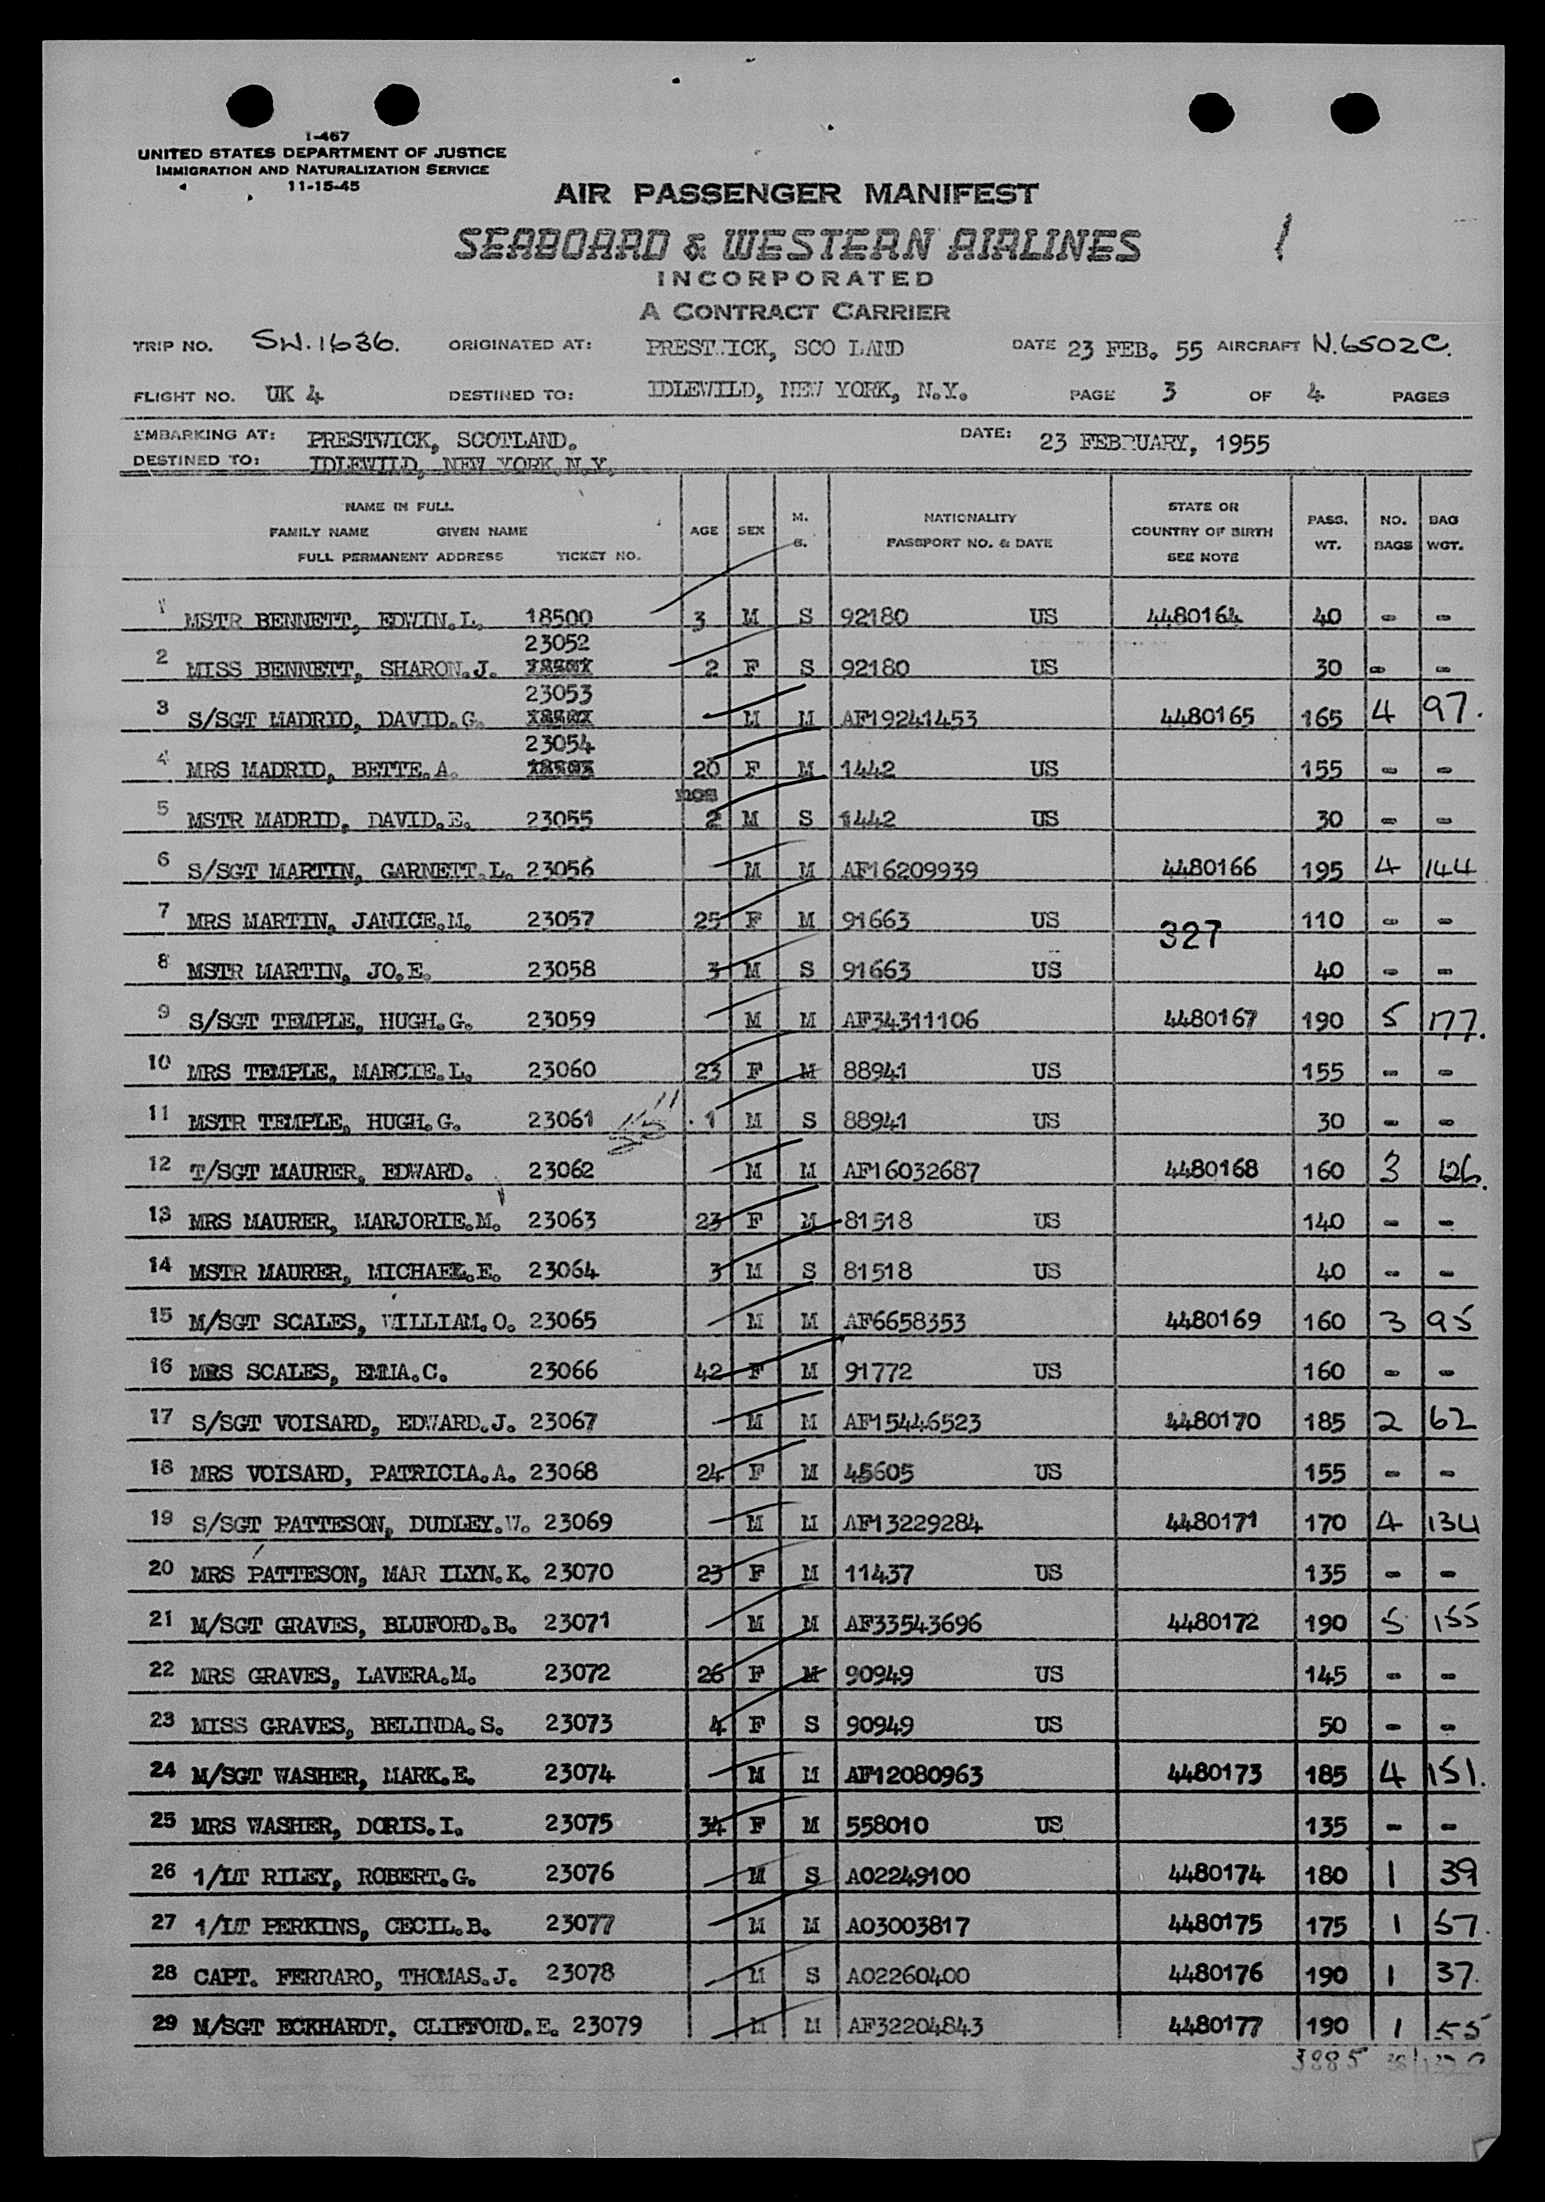 I-467
UNITED STATES DEPARTMENT OF JUSTICE
IMMIGRATION AND NATURALIZATION SERVICE
11-15-45
AIR PASSENGER MANIFEST
SEABOARD & WESTERN AIRLINES
INCORPORATED
A CONTRACT CARRIER
TRIP NO. SW.1636. ORIGINATED AT: PREST ICK, SCO LAND DATE 23 FEB. 55 AIRCRAFT N.6502C.
FLIGHT NO. UK 4 DESTINED TO: IDLEWILD, NEW YORK, N.Y. PAGE 3 OF 4 PAGES
EMBARKING AT: PRESTWICK, SCOTLAND. DATE: 23 FEBRUARY, 1955
DESTINED TO: IDLEWILD, NEW YORK, N.Y.
NAME IN FULL
FAMILY NAME GIVEN NAME
FULL PERMANENT ADDRESS TICKET NO.
AGE SEX M. S. NATIONALITY PASSPORT NO. & DATE STATE OR COUNTRY OF BIRTH SEE NOTE PASS. WT. NO. BAGS BAG WGT.
1 MSTR BENNETT, EDWIN.L. 18500 3 M S 92180 US 4480164 40 - -
23052
2 MISS BENNETT, SHARON.J. 2 F S 92180 US 30 - -
23053
3 S/SGT MADRID, DAVID.G. M M AF19241453 4480165 165 4 97.
23054
4 MRS MADRID, BETTE.A. 20 F M 1442 US 155 - -
mos
5 MSTR MADRID, DAVID.E. 23055 2 M S 1442 US 30 - -
6 S/SGT MARTIN, GARNETT.L. 23056 M M AF16209939 4480166 195 4 144
7 MRS MARTIN, JANICE.M. 23057 25 F M 91663 US 110 - -
327
8 MSTR MARTIN, JO.E. 23058 3 M S 91663 US 40 - -
9 S/SGT TEMPLE, HUGH.G. 23059 M M AF34311106 4480167 190 5 177.
10 MRS TEMPLE, MARCIE.L. 23060 23 F M 88941 US 155 - -
11 MSTR TEMPLE, HUGH.G. 23061 1 M S 88941 US 30 - -
12 T/SGT MAURER, EDWARD. 23062 M M AF16032687 4480168 160 3 126.
13 MRS MAURER, MARJORIE.M. 23063 23 F M 81518 US 140 - -
14 MSTR MAURER, MICHAEL.E. 23064 3 M S 81518 US 40 - -
15 M/SGT SCALES, WILLIAM.O. 23065 M M AF6658353 4480169 160 3 95
16 MRS SCALES, EMMA.C. 23066 42 F M 91772 US 160 - -
17 S/SGT VOISARD, EDWARD.J. 23067 M M AF15446523 4480170 185 2 62
18 MRS VOISARD, PATRICIA.A. 23068 24 F M 45605 US 155 - -
19 S/SGT PATTESON, DUDLEY.W. 23069 M M AF13229284 4480171 170 4 134
20 MRS PATTESON, MAR ILYN.K. 23070 23 F M 11437 US 135 - -
21 M/SGT GRAVES, BLUFORD.B. 23071 M M AF33543696 4480172 190 5 155
22 MRS GRAVES, LAVERA.M. 23072 26 F M 90949 US 145 - -
23 MISS GRAVES, BELINDA.S. 23073 4 F S 90949 US 50 - -
24 M/SGT WASHER, MARK.E. 23074 M M AF12080963 4480173 185 4 151.
25 MRS WASHER, DORIS.I. 23075 34 F M 558010 US 135 - -
26 1/LT RILEY, ROBERT.G. 23076 M S AO2249100 4480174 180 1 39
27 1/LT PERKINS, CECIL.B. 23077 M M AO3003817 4480175 175 1 57.
28 CAPT. FERRARO, THOMAS.J. 23078 M S AO2260400 4480176 190 1 37.
29 M/SGT ECKHARDT, CLIFFORD.E. 23079 M M AF32204843 4480177 190 1 55
3885